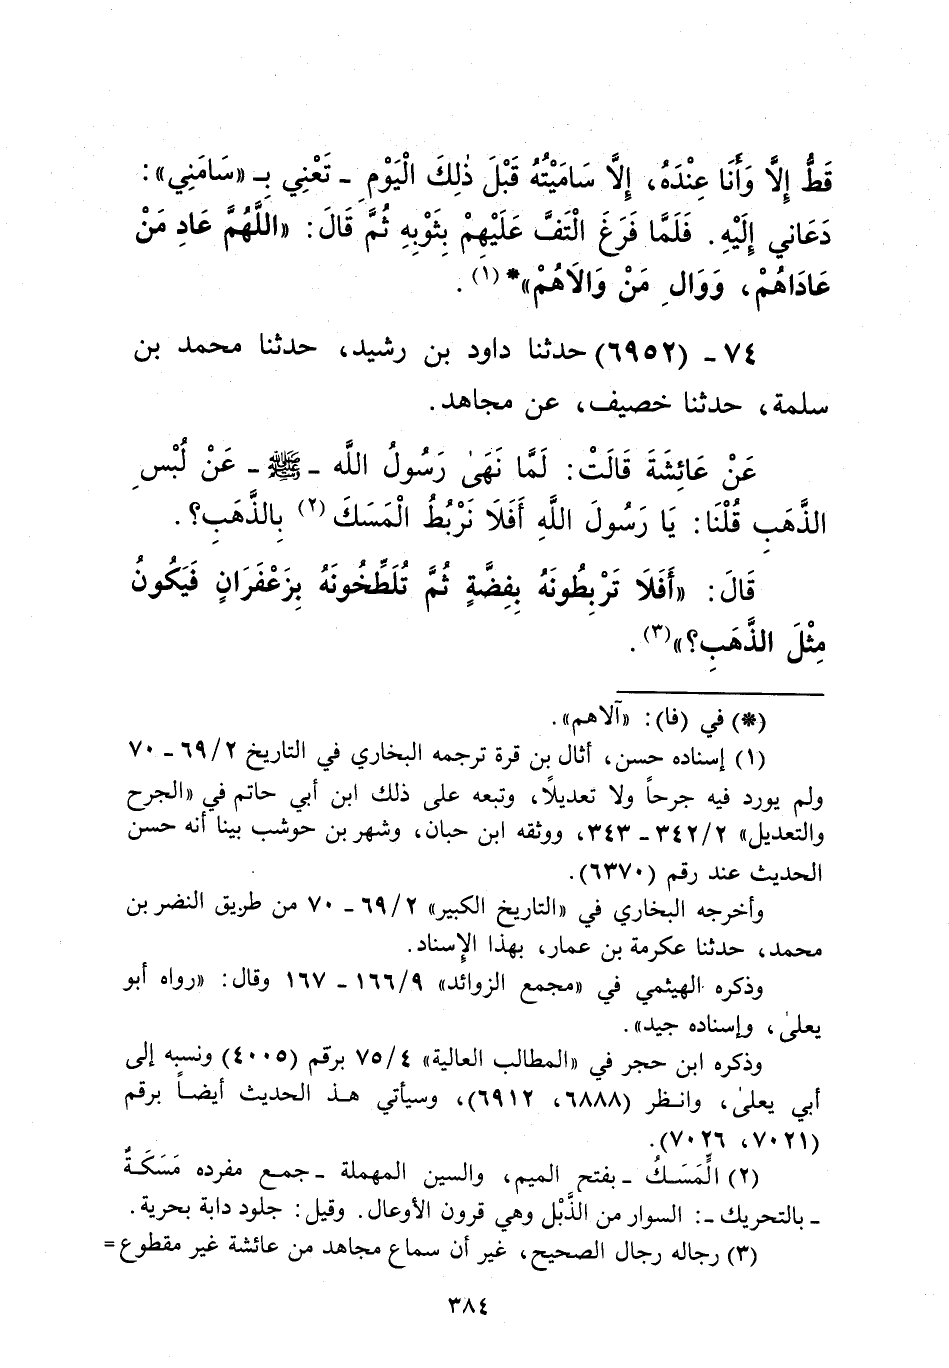 قَطُّ إِلَّا وَأَنَا عِنْدَهُ، إِلَّا سَامَيْتُهُ قَبْلَ ذٰلِكَ الْيَوْمِ ـ تَعْنِي بِـ «سَامَنِي»:
دَعَاني إِلَيْهِ. فَلَمَّا فَرَغَ الْتَفَّ عَلَيْهِمْ بِثَوْبِهِ ثُمَّ قَالَ: «اللَّهُمَّ عَادِ مَنْ
عَادَاهُمْ، وَوَالِ مَنْ وَالَاهُمْ»*(١).
٧٤ ـ (٦٩٥٢) حدثنا داود بن رشيد، حدثنا محمد بن
سلمة، حدثنا خصيف، عن مجاهد.
عَنْ عَائِشَةَ قَالَتْ: لَمَّا نَهَىٰ رَسُولُ اللَّه ـ ﷺ ـ عَنْ لُبْسِ
الذَّهَبِ قُلْنَا: يَا رَسُولَ اللَّهِ أَفَلَا نَرْبُطُ الْمَسَكَ(٢) بِالذَّهَبِ؟.
قَالَ: «أَفَلَا تَرْبِطُونَهُ بِفِضَّةٍ ثُمَّ تُلَطِّخُونَهُ بِزَعْفَرَانٍ فَيَكُونُ
مِثْلَ الذَّهَبِ؟»(٣).
(*) في (فا): «آلاهم».
(١) إسناده حسن، أثال بن قرة ترجمه البخاري في التاريخ ٦٩/٢ ـ ٧٠
ولم يورد فيه جرحاً ولا تعديلًا، وتبعه على ذلك ابن أبي حاتم في «الجرح
والتعديل» ٣٤٢/٢ ـ ٣٤٣، ووثقه ابن حبان، وشهر بن حوشب بينا أنه حسن
الحديث عند رقم (٦٣٧٠).
وأخرجه البخاري في «التاريخ الكبير» ٦٩/٢ ـ ٧٠ من طريق النضر بن
محمد، حدثنا عكرمة بن عمار، بهذا الإسناد.
وذكره الهيثمي في «مجمع الزوائد» ١٦٦/٩ ـ ١٦٧ وقال: «رواه أبو
يعلىٰ، وإسناده جيد».
وذكره ابن حجر في «المطالب العالية» ٧٥/٤ برقم (٤٠٠٥) ونسبه إلى
أبي يعلىٰ، وانظر (٦٨٨٨، ٦٩١٢)، وسيأتي هذ الحديث أيضاً برقم
(٧٠٢١، ٧٠٢٦).
(٢) الْمَسَكُ ـ بفتح الميم، والسين المهملة ـ جمع مفرده مَسَكَةٌ
ـ بالتحريك ـ: السوار من الذَّبْل وهي قرون الأوعال. وقيل: جلود دابة بحرية.
(٣) رجاله رجال الصحيح، غير أن سماع مجاهد من عائشة غير مقطوع =
٣٨٤